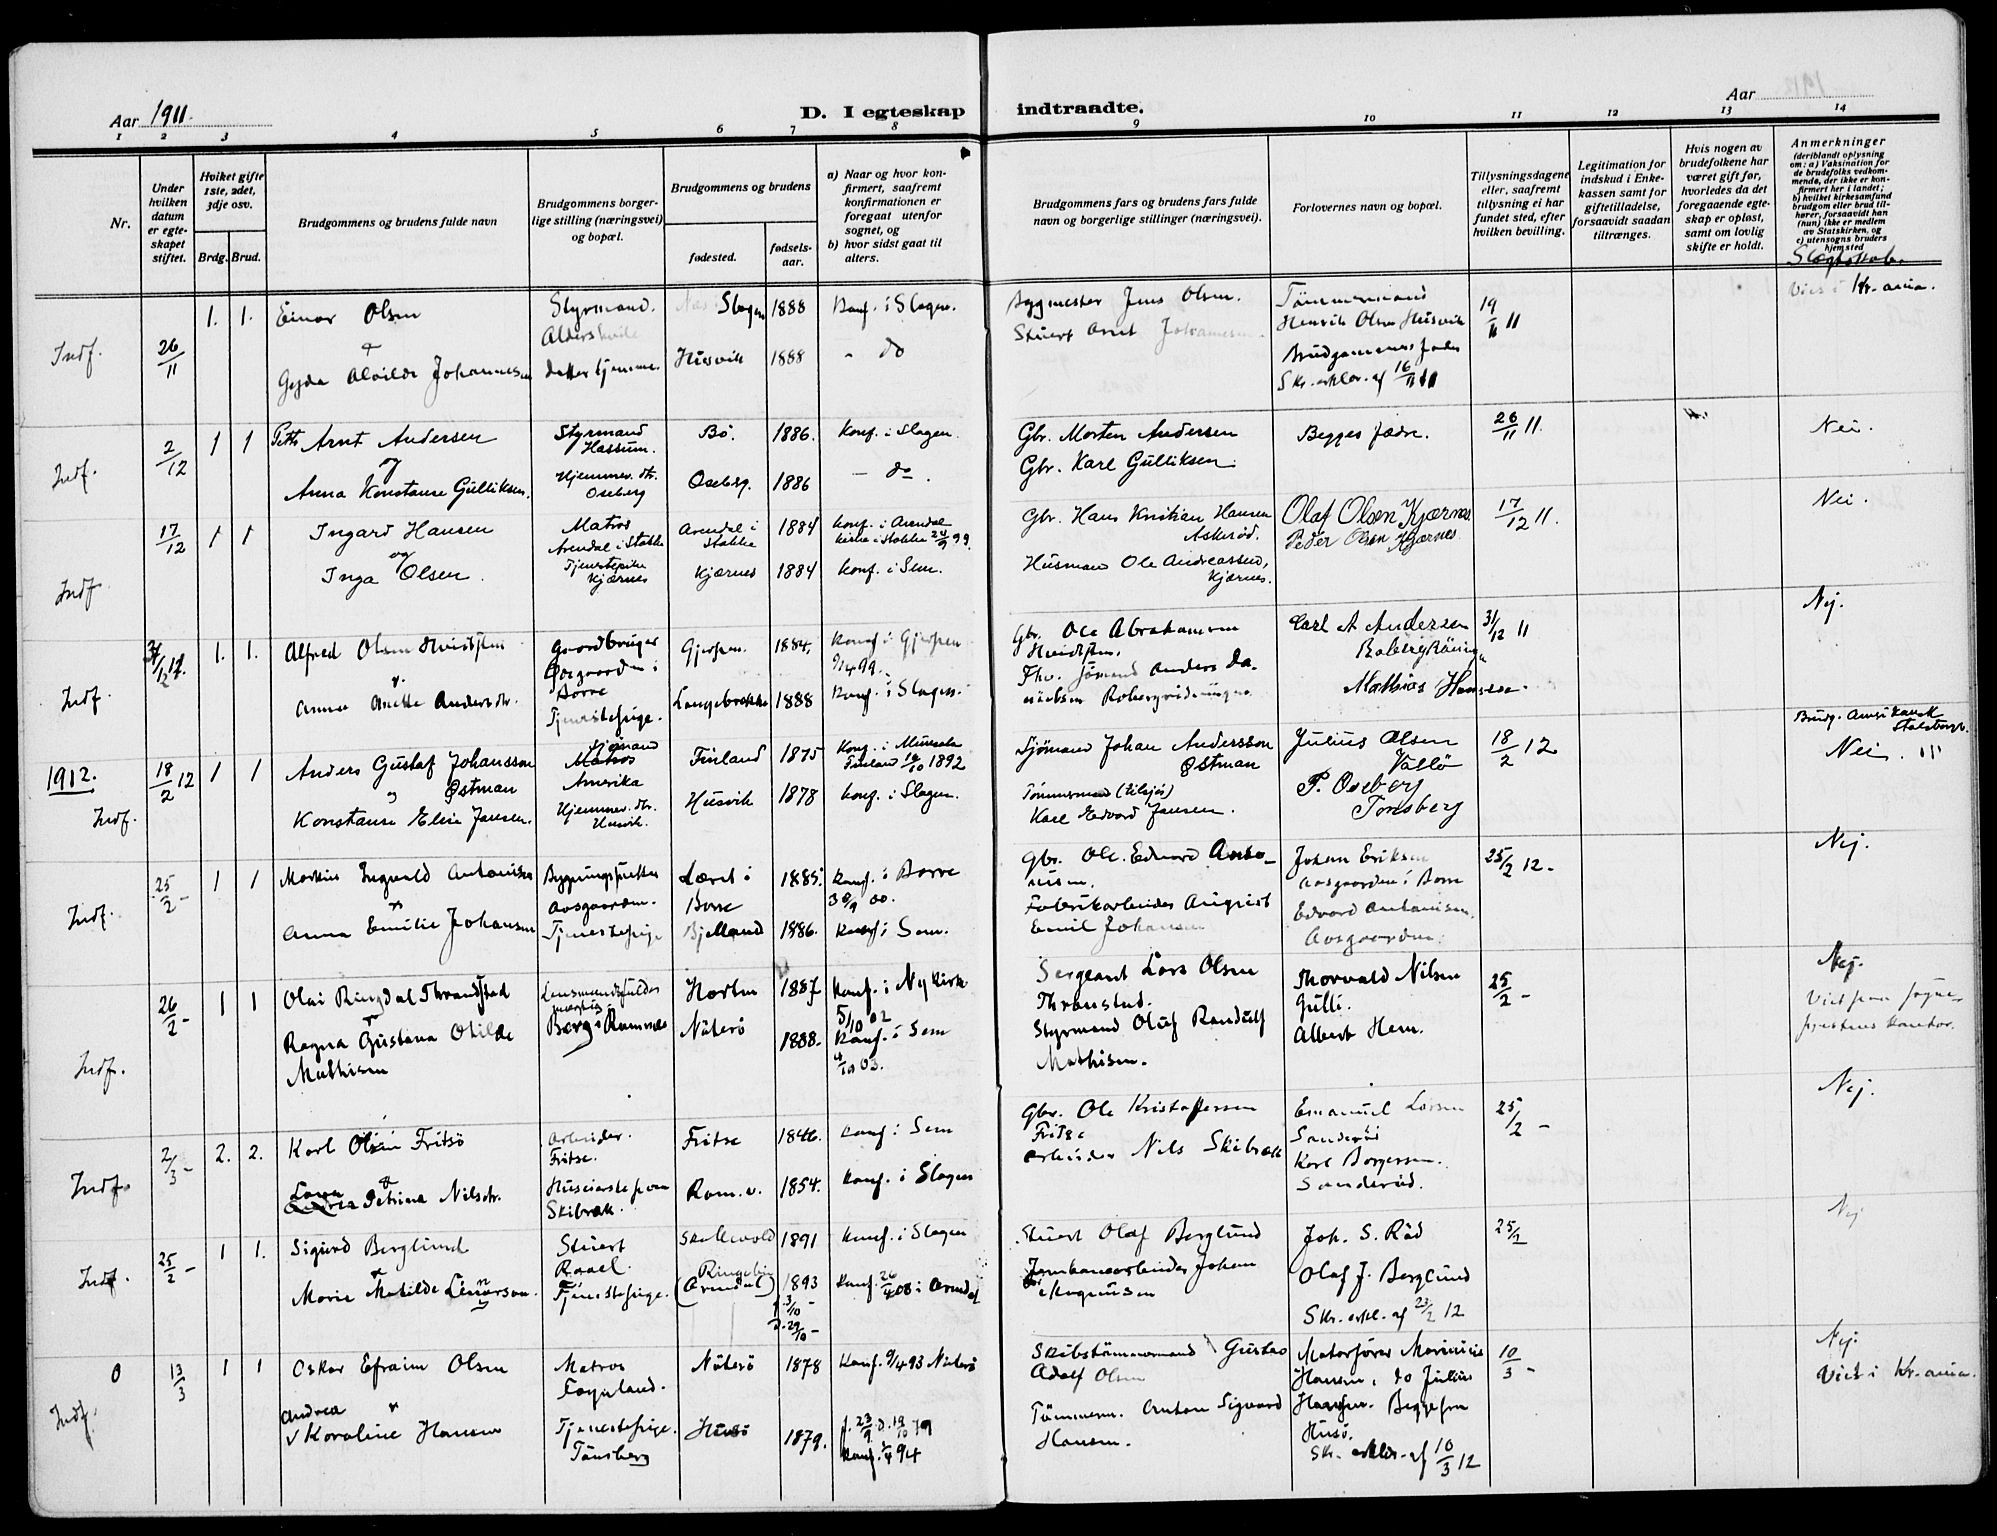 Aar 1911.
D. I egteskap indtraadte.
Aar 191
1 2 3 4 5 6 7 8 9 10 11 12 13 14
Nr.
Under hvilken datum er egteskapet stiftet.
Hviket gifte 1ste, 2det, 3dje osv.
Brdg. Brud.
Brudgommens og brudens fulde navn
Brudgommens borgerlige stilling (næringsvei) og bopæl.
Brudgommens og brudens
fødested.
fødselsaar.
a) Naar og hvor konfirmert, saafremt konfirmationen er foregaat utenfor sognet, og
b) hvor sidst gaat til alters.
Brudgommens fars og brudens fars fulde navn og borgerlige stillinger (næringsvei).
Forlovernes navn og bopæl.
Tillysningsdagene eller, saafremt tillysning ei har fundet sted, efter hvilken bevilling.
Legitimation for indskud i Enkekassen samt for giftetilladelse, forsaavidt saadan tiltrænges.
Hvis nogen av brudefolkene har været gift før, hvorledes da det foregaaende egteskap er opløst, samt om lovlig skifte er holdt.
Anmerkninger
(deriblandt oplysning om: a) Vaksination for de brudefolks vedkommende, der ikke er konfirmert her i landet; b) hvilket kirkesamfund brudgom eller brud tilhører, forsaavidt han (hun) ikke er medlem av Statskirken, og c) utensogns bruders hjemsted
Slegtskab.
Indf. 26/11 1. 1. Einar Olsen Styrmand. Slagen 1888 Konf. i Slagen. Bygmester Jens Olsen. Tömmermand 19/11 11 Viet i Kr.ania.
Stuert Arnt Johannesen Henrik Olsen Husvik
& Gyda Alvilde Johannesen datter hjemme. Husvik 1888 - do Brudgommens fader
Skr. erklær. af 16/11 11
Indf. 2/12 1 1 Arnt Andersen Styrmand Hassum. Bö. 1886. Konf. i Slagen. Gbr. Morten Andersen Begges fædre. 26/11 11. Nei.
og Anna Konstanse Gulliksen. Hjemmev. dtr. Oseberg Oseberg. 1886 - do. Gbr. Karl Gulliksen.
Indf. 17/12 1 1 Ingard Hansen Matros Arendal i Stokke Arendal i Stokke 1884 Konf. i Arendal kirke i Stokke 24/9 99. Gbr. Hans Kristian Hansen Askerød. Olaf Olsen Kjærnes 17/12 11. Nei
Peder Olsen Kjærnes
og Inga Olsen. Tjenestepike Kjærnes Kjærnes 1884 Konf. i Sem. Husmand Ole Andreassen, Kjærnes.
Indf. 31/12 11. 1. 1. Alfred Olsen Hvidsten Gaardbruger i Borre Gjerpen. 1884. Konf. i Gjerpen 9/4 99. Gbr. Ole Abrahamsen Hvidsten. Carl A Andersen 31/12 11 Nej.
Anna Anette Andersdtr. Tjenestepige. Langebrække 1888 Konf. i Slagen. Fhv. Sjömand Anders Danielsen Mathias Hansen.
1912. Indf. 18/2 12 1 1 Anders Gustaf Johansson Østman Sjömand Matros Amerika Finland 1875 Konf. i Finland 16/10 1892 Sjömand Johan Andersson Østman Julius Olsen Vallö 18/2 12 Brudg. Amerikansk Statsborger. Nei.
og Konstanse Elise Jansen. Hjemmev. dtr. Husvik. Husvik 1878 Konf. i Slagen. Tömmermand (tilsjös) Karl Edvard Jansen. P. Oseberg Tønsberg
Indf. 25/2 - 1 1 Markus Ingvald Antonisen Aasgaarden. i Borre 1885. Konf. i Borre 30/9 00. Gbr. Ole Edvard Antonisen. Johan Eriksen Aasgaarden i Borre 25/2 12. Nej.
& Anna Emilie Johansen Tjenestepige Bjelland 1886. Konf. i Sem. Fabrikarbeider August Emil Johansen Edvard Antonisen. Aasgaarden.
Indf. 26/2 - 1 1 Olai Ringdal Thrandstad Berg i Ramnæs Horten 1887 Konf. i Nykirke 5/10 02 Sergeant Lars Olsen Thranstad. Thorvald Nilsen Gulli. 25/2 - Nej.
Ragna Gustava Otilde Mathisen Nöterö 1888. Konf. i Sem 4/10 03. Styrmand Oluf Randulf Mathisen. Albert Hem. Viet paa sognepræstens kontor.
Indf. 2/3 - 2. 2. Karl Olsen Fritsö Arbeider. Fritse. Fritse 1846. Konf. i Sem Gbr. Ole Kristoffersen Fritse Emanuel Larsen Sanderöd 25/2 - Nej.
& Lovn Andrea Petrine Nilsdtr. Husejerske Skibræk. Ramn. 1854. Konf. i Slagen Arbeider Nils Skibræk Karl Borgersen. Sanderöd.
Indf. 25/2 - 1 1. Sigurd Berglund Stuert Raael. Skallevold 1891 Konf. i Slagen Stuert Olaf Berglund Joh. S. Räd 25/2 Nej
& Marie Matilde Lennarson. Tjenestepige. (Arendal) 1893 f. 3/10 - d. 29/10 - Konf. 26/4 08 i Arendal Jernbanearbeider Johan Magnusen Olaf J. Berglund
Skr. erkl. af 23/2 12
Indf. 0 13/3 1 1 Oskar Efraim Olsen Matros Föynland. Nöterö 1878 Konf. 9/4 93 Nöterö Skibstömmermand Gustav Adolf Olsen Motorförer Marinius Hansen, do Julius 10/3 - Nej. Viet i Kr.ania.
Andrea & Karoline Hansen Tjenestepige. Tönsberg Husö 1879. f. 23/9 d. 19/10 79 Konf. 94 Tömmerm. Anton Sigvard Hansen. Hansen. Begge fra Husö.
Skr. erklær. af 10/3 12